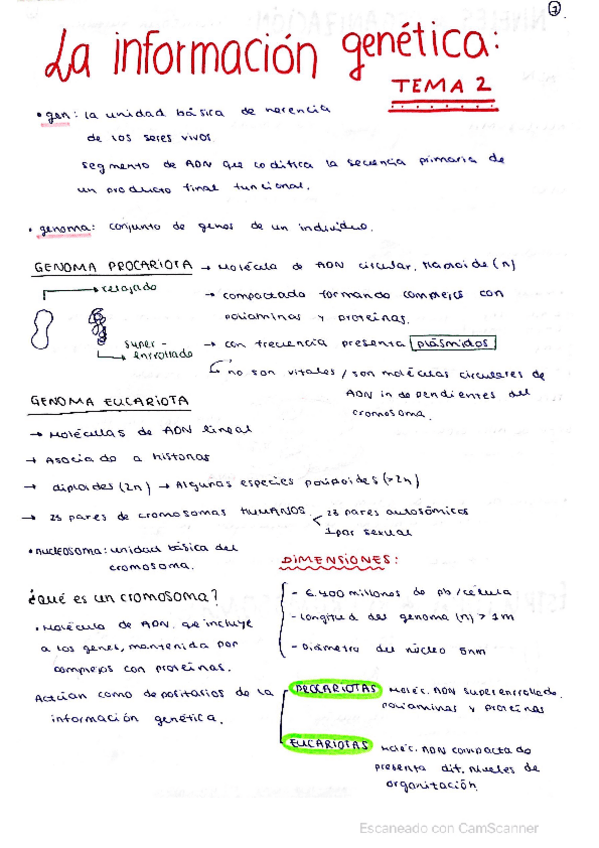 1
La información genética:
TEMA 2
• gen: la unidad básica de herencia
de los seres vivos.
segmento de ADN que codifica la secuencia primaria de
un producto final funcional.
• genoma: conjunto de genes de un individuo.
GENOMA PROCARIOTA → Molécula de ADN circular, haploide (n)
→ relajado
→ compactado formando complejos con
poliaminas y proteínas.
super-
enrollado
→ con frecuencia presenta plásmidos
no son vitales / son moléculas circulares de
ADN independientes del
cromosoma.
GENOMA EUCARIOTA
→ Moléculas de ADN lineal
→ Asociado a histonas
→ diploides (2n) → Algunas especies poliploides (>2n)
→ 23 pares de cromosomas HUMANOS. 22 pares autosómicos
1 par sexual
• nucleosoma: unidad básica del
cromosoma.
DIMENSIONES:
- 6.400 millones de pb/célula
- Longitud del genoma (n) > 1m
- Diámetro del núcleo 5nm
¿Qué es un cromosoma?
• Molécula de ADN, que incluye
a los genes, mantenida por
complejos con proteínas.
Actúan como depositarios de la
información genética.
PROCARIOTAS Moléc. ADN superenrollado.
poliaminas y proteínas
EUCARIOTAS Moléc. ADN compactado
presenta dif. niveles de
organización.
Escaneado con CamScanner